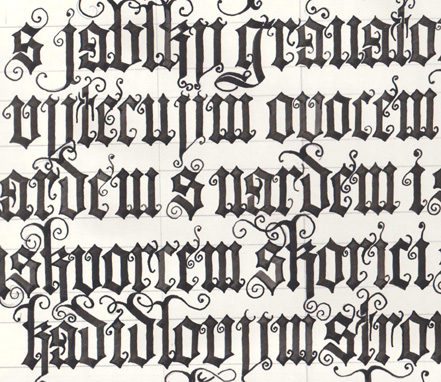 s jablky granáto
výtečným ovocem
ardem s nardem i s
škvorcem skořicí
kadidlovým stro